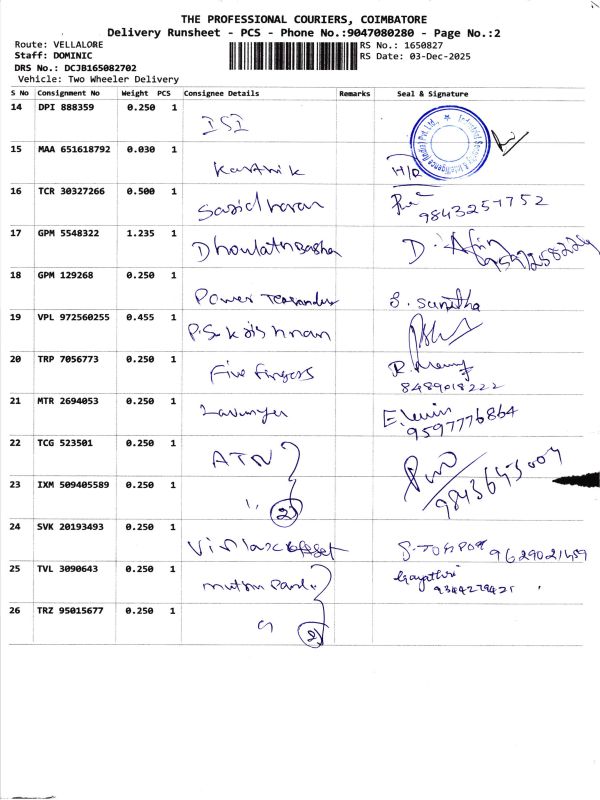 THE PROFESSIONAL COURIERS, COIMBATORE
Delivery Runsheet - PCS - Phone No.:9047080280 - Page No.:2
Route: VELLALORE RS No.: 1650827
Staff: DOMINIC RS Date: 03-Dec-2025
DRS No.: DCJB165082702
Vehicle: Two Wheeler Delivery
S No Consignment No Weight PCS Consignee Details Remarks Seal & Signature
14 DPI 888359 0.250 1 ISI
15 MAA 651618792 0.030 1 Karthik H/R
16 TCR 30327266 0.500 1 Sasidharan 9843251752
17 GPM 5548322 1.235 1 Dhoulathbasha D. 
18 GPM 129268 0.250 1 Power S. Sunitha
19 VPL 972560255 0.455 1 P.S. Krishnan
20 TRP 7056773 0.250 1 Five fingers 8489018222
21 MTR 2694053 0.250 1 9597776864
22 TCG 523501 0.250 1 ATN
23 IXM 509405589 0.250 1 ,, 2
24 SVK 20193493 0.250 1 9629021489
25 TVL 3090643 0.250 1 Gayathri
26 TRZ 95015677 0.250 1 2